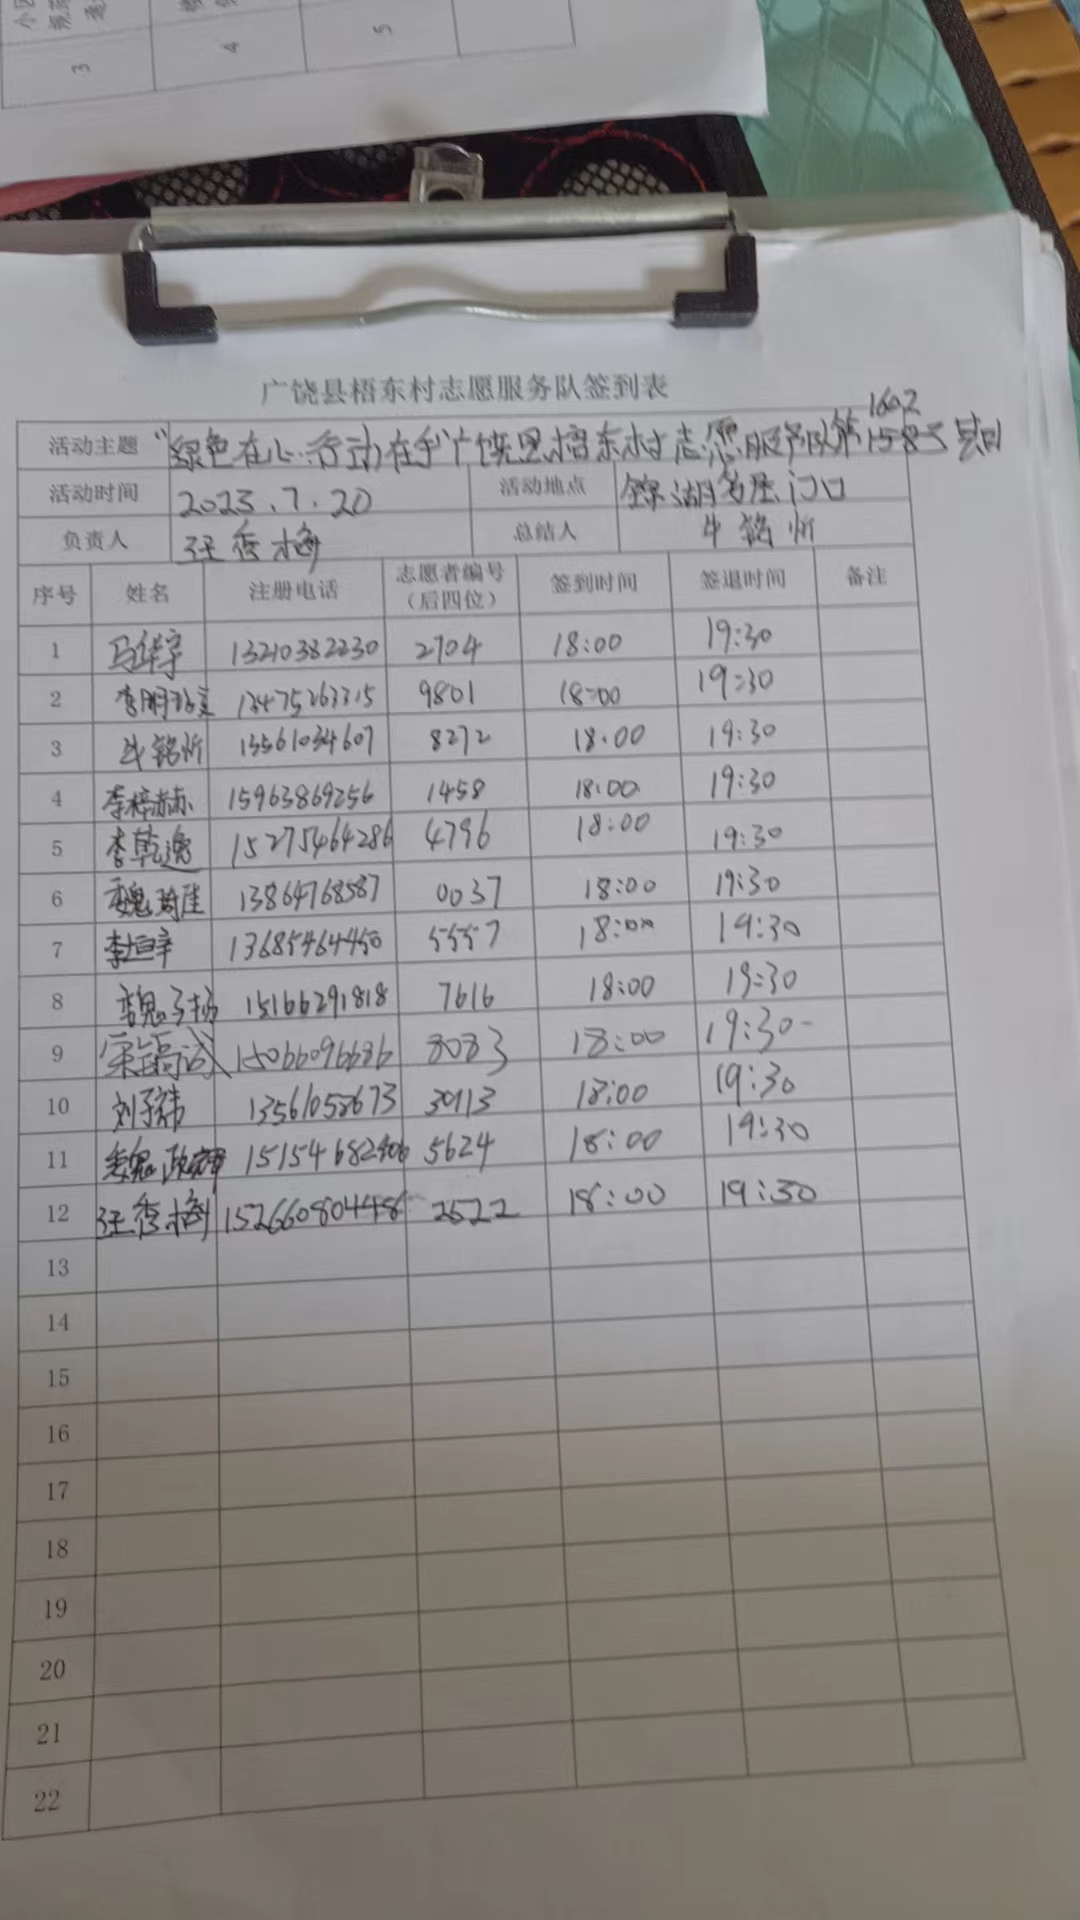 3
4
5
广饶县梧东村志愿服务队签到表
1602
活动主题 "绿色在心 行动在手"广饶县梧东村志愿服务队第1583期
活动时间 2023.7.20 活动地点 锦湖名居门口
负责人 汪秀梅 总结人 牛铭炘
序号 姓名 注册电话 志愿者编号（后四位） 签到时间 签退时间 备注
1 马华宇 13210382230 2704 18:00 19:30
2 13475263315 9801 18:00 19:30
3 牛铭炘 13561034607 8272 18:00 19:30
4 李梓赫 15963869256 1458 18:00 19:30
5 李乾逸 15275464286 4796 18:00 19:30
6 魏琦佳 13864768587 0037 18:00 19:30
7 李垣辛 13685464450 5557 18:00 19:30
8 魏子扬 15166291818 7616 18:00 19:30
9 15066096686 8083 18:00 19:30
10 刘子祎 13561058673 18:00 19:30
11 魏 5624 18:00 19:30
12 汪秀梅 2522 18:00 19:30
13
14
15
16
17
18
19
20
21
22